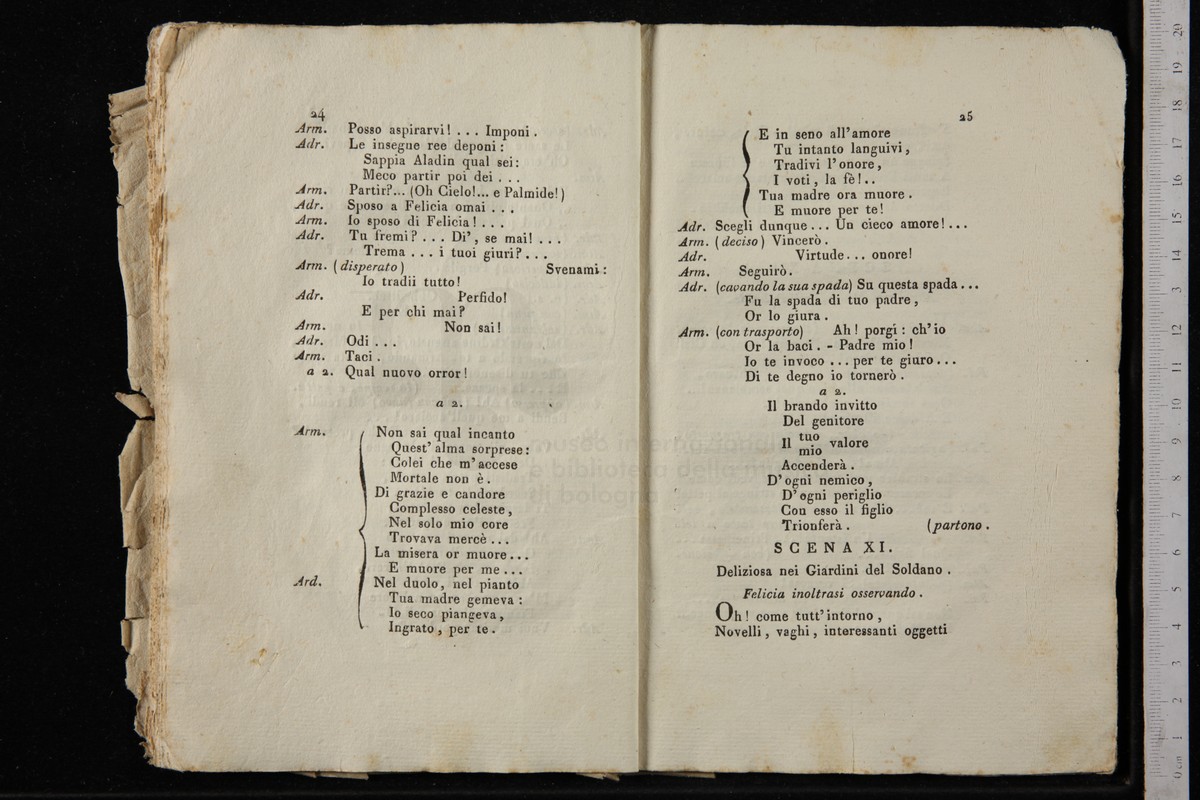 24
Arm. Posso aspirarvi! . . . Imponi.
Adr. Le insegue ree deponi:
Sappia Aladin qual sei:
Meco partir poi dei . . .
Arm. Partir?... (Oh Cielo!... e Palmide!)
Adr. Sposo a Felicia omai . . .
Arm. Io sposo di Felicia! . . .
Adr. Tu fremi? . . . Di', se mai! . . .
Trema . . . i tuoi giuri? . . .
Arm. (disperato) Svenami:
Io tradii tutto!
Adr. Perfido!
E per chi mai?
Arm. Non sai!
Adr. Odi . . .
Arm. Taci.
a 2. Qual nuovo orror!
a 2.
Arm. Non sai qual incanto
Quest' alma sorprese:
Colei che m'accese
Mortale non è.
Di grazie e candore
Complesso celeste,
Nel solo mio core
Trovava mercè...
La misera or muore...
E muore per me...
Ard. Nel duolo, nel pianto
Tua madre gemeva:
Io seco piangeva,
Ingrato, per te.
25
E in seno all'amore
Tu intanto languivi,
Tradivi l'onore,
I voti, la fè!..
Tua madre ora muore.
E muore per te!
Adr. Scegli dunque... Un cieco amore!...
Arm. (deciso) Vincerò.
Adr. Virtude... onore!
Arm. Seguirò.
Adr. (cavando la sua spada) Su questa spada...
Fu la spada di tuo padre,
Or lo giura.
Arm. (con trasporto) Ah! porgi: ch'io
Or la baci. - Padre mio!
Io te invoco ... per te giuro...
Di te degno io tornerò.
a 2.
Il brando invitto
Del genitore
Il tuo valore
mio
Accenderà.
D'ogni nemico,
D'ogni periglio
Con esso il figlio
Trionferà. (partono.
SCENA XI.
Deliziosa nei Giardini del Soldano.
Felicia inoltrasi osservando.
Oh! come tutt'intorno,
Novelli, vaghi, interessanti oggetti
museo internazionale
e biblioteca della musica
di bologna